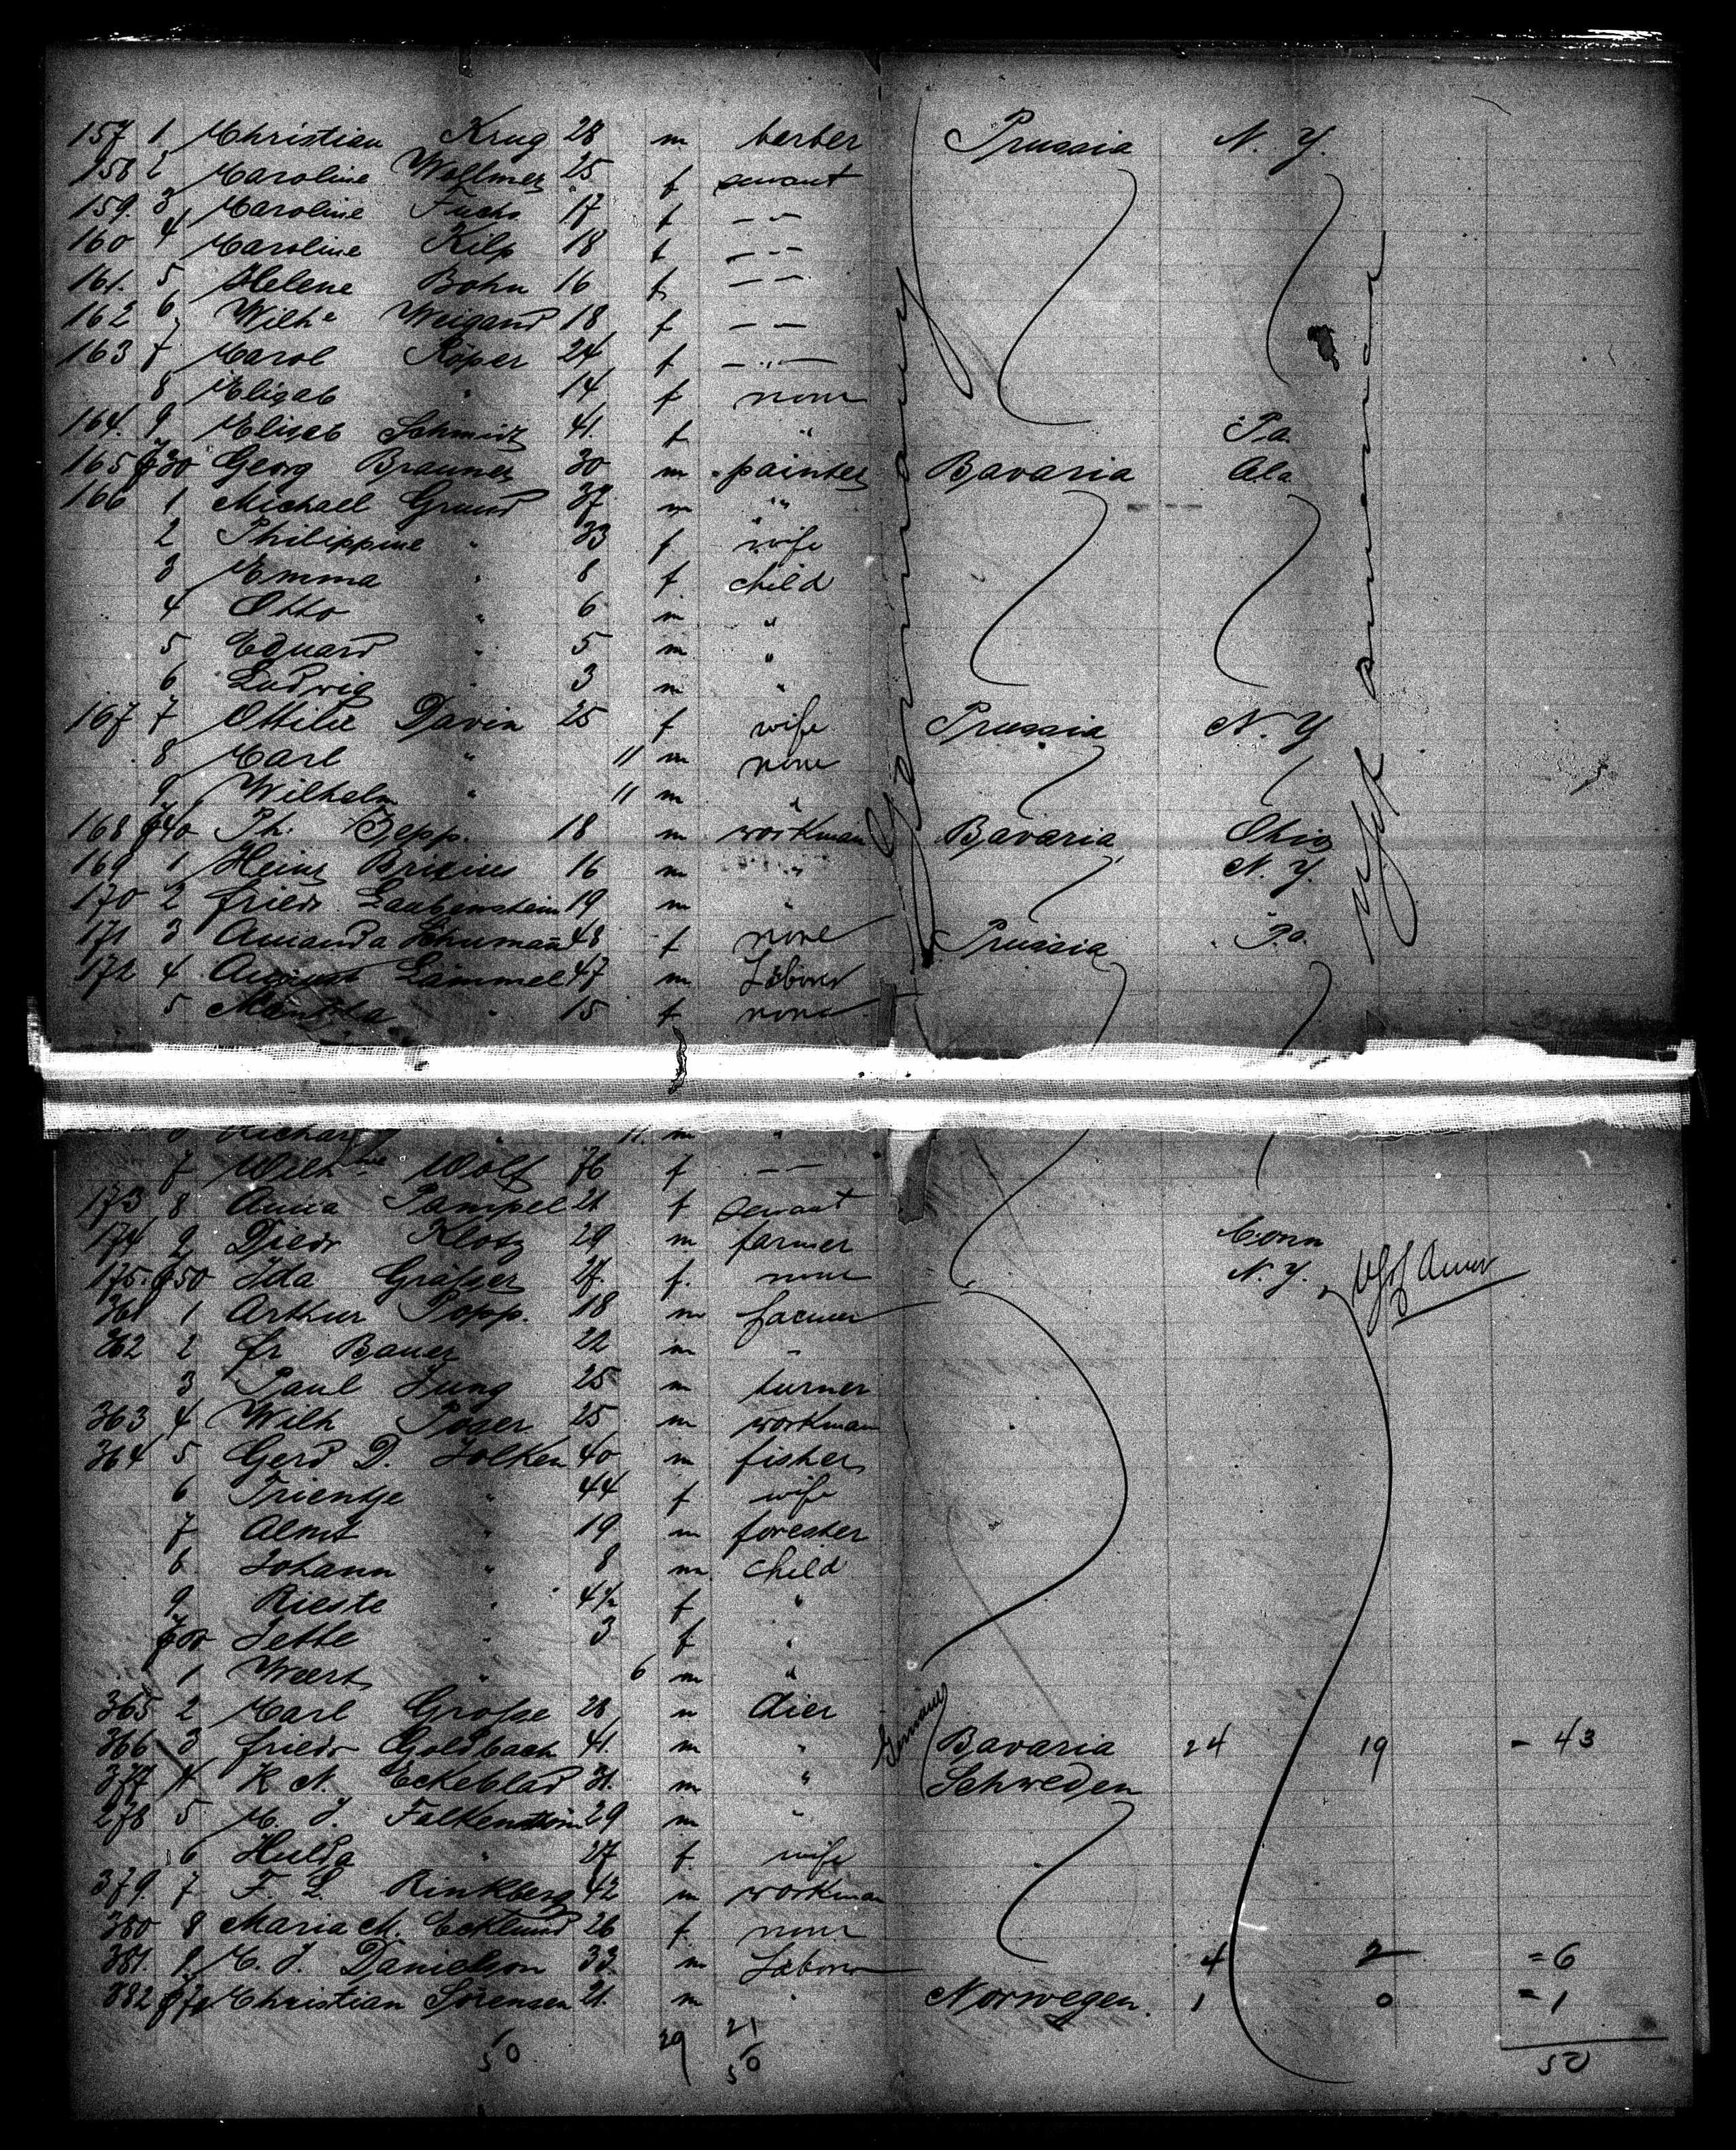 157 1 Christian Krug 28 m barber Prussia N. Y.
158 2 Caroline Wollmer 25 f servant
159. 3 Caroline Fuchs 17 f — " —
160 4 Caroline Kilp 18 f — " —
161. 5 Helene Bohn 16 f — " —
162 6 Wilhe Weigand 18 f — " —
163 7 Carol Röper 24 f — " —
8 Elisab " 14 f none
164. 9 Elisab Schmidt 41. f " Pa.
165 730 Georg Brauner 30 m painter Bavaria Ala
166 1 Michael Grund 37 m "
2 Philippine " 33 f wife
3 Emma " 8 f child
4 Otto " 6 m "
5 Eduard " 5 m "
6 Ludwig " 3 m "
167 7 Ottilie Davin 25 f wife Prussia N. Y
8 Carl " 11 m none
9 Wilhelm " 11 m "
168 740 Ph. Zepp. 18 m workman Bavaria Ohio
169 1 Heinr Brixius 16 m " N. Y.
170 2 Friedr Laubenstein 19 m "
171 3 Amanda Schumann 48 f none Prussia Pa.
172 4 August Lämmel 47 m Laborer
5 " 15 f none
Germany
U S of America
6 Richard " 11 m "
7 Wilhine Wolf 76 f — " —
173 8 Anna Pampel 21 f servant
174 9 Diedr Klotz 29 m farmer Conn
175. 750 Ida Gräfser 27. f. none N. Y. U S of Amer
361 1 Arthur Popp. 18 m farmer
362 2 Fr Bauer 22 m "
3 Paul Jung 25 m turner
363 4 Wilh Poser 25 m workman
364 5 Gerd D. Folken 40 m fisher
6 Trientje " 44 f wife
7 " 19 m forester
8 Johann " 8 m child
9 Rieste " 4½ f "
Jette " 3 f "
1 Weert " 6 m "
365 2 Carl Grofse 28 m dier
366 3 Friedr Goldbach 41. m " Germany Bavaria 24 19 = 43
377 4 K. N. Eckeblad 31. m " Schweden
278 5 C. J. Falkenström 29 m "
6 Hulda " 27 f. wife
379. 7 F. L. Rinkberg 42 m workman
380 8 Maria M. Ecklund 26 f none
381. 9 C. J. Danielson 33. m Laborer 4 2 = 6
382 Christian Sörensen 21. m " Norwegen. 1 0 = 1
50 29 21 50 50